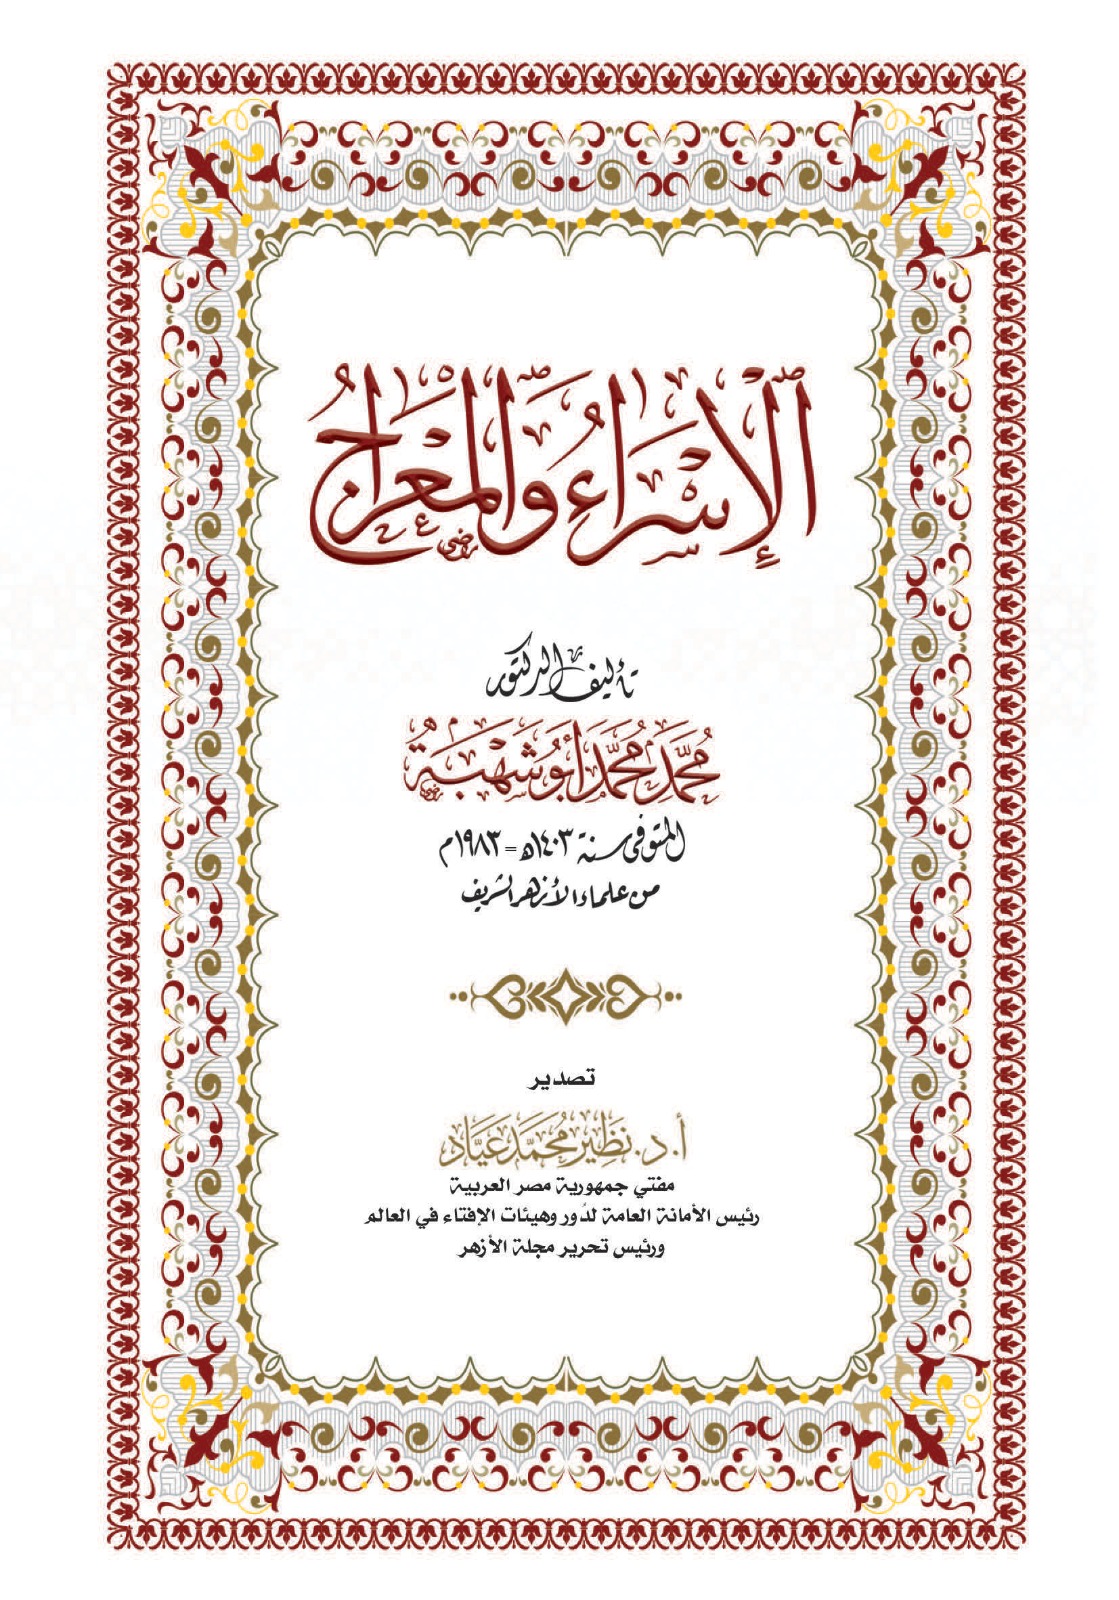 الإِسْرَاءُ وَالمِعْرَاجُ
تأليف الدكتور
مُحَمَّد مُحَمَّد أَبُو شَهْبَة
المتوفى سنة ١٤٠٣هـ = ١٩٨٣م
من علماء الأزهر الشريف
تصدير
أ.د. نَظِير مُحَمَّد عَيَّاد
مفتي جمهورية مصر العربية
رئيس الأمانة العامة لدُور وهيئات الإفتاء في العالم
ورئيس تحرير مجلة الأزهر